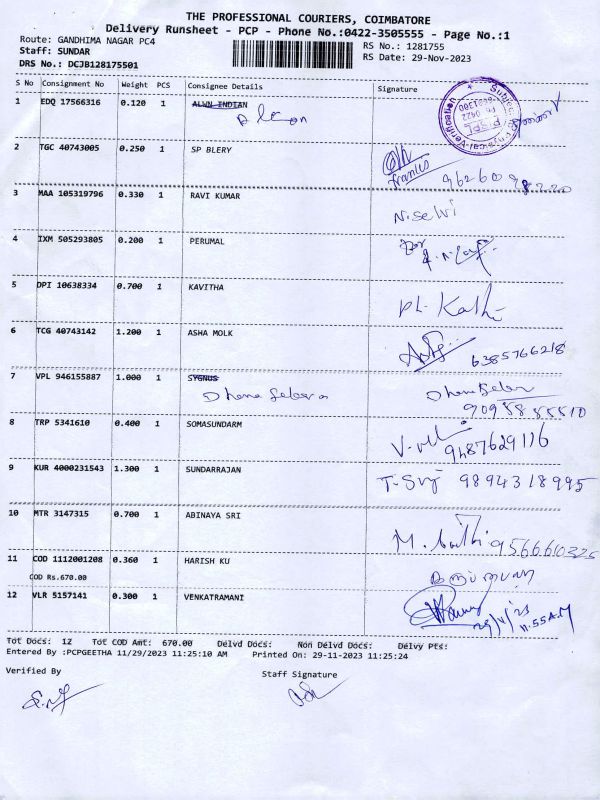 THE PROFESSIONAL COURIERS, COIMBATORE
Delivery Runsheet - PCP - Phone No.:0422-3505555 - Page No.:1
Route: GANDHIMA NAGAR PC4 RS No.: 1281755
Staff: SUNDAR RS Date: 29-Nov-2023
DRS No.: DCJB128175501
S No Consignment No Weight PCS Consignee Details Signature
1 EDQ 17566316 0.120 1 ALWN INDIAN
2 TGC 40743005 0.250 1 SP BLERY
Francis
3 MAA 105319796 0.330 1 RAVI KUMAR N.Selvi
4 IXM 505293805 0.200 1 PERUMAL
5 DPI 10638334 0.700 1 KAVITHA
6 TCG 40743142 1.200 1 ASHA MOLK
6385766218
7 VPL 946155887 1.000 1 SYGNUS
8 TRP 5341610 0.400 1 SOMASUNDARM
9487629116
9 KUR 4000231543 1.300 1 SUNDARRAJAN
9894318995
10 MTR 3147315 0.700 1 ABINAYA SRI
11 COD 1112001208 0.360 1 HARISH KU
COD Rs.670.00
12 VLR 5157141 0.300 1 VENKATRAMANI
11.55 A.M
Tot Docs: 12 Tot COD Amt: 670.00 Delvd Docs: Non Delvd Docs: Delvy Pts:
Entered By :PCPGEETHA 11/29/2023 11:25:10 AM Printed On: 29-11-2023 11:25:24
Verified By Staff Signature